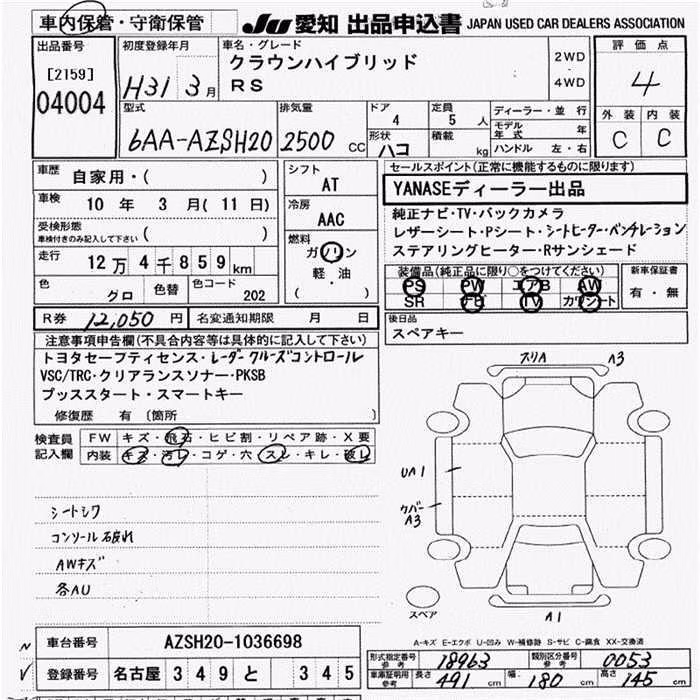 車内保管・守衛保管 JU 愛知 出品申込書 JAPAN USED CAR DEALERS ASSOCIATION
出品番号 初度登録年月 車名・グレード 評価点
[2159] H31 3月 クラウンハイブリッド 2WD 4
04004 RS 4WD
型式 排気量 ドア 定員 ディーラー・並行 外装 内装
4 5人 モデル年式 年
6AA-AZSH20 2500 CC 形状 ハコ 積載 kg ハンドル 左・右 C C
車歴 自家用・( ) シフト セールスポイント(正常に機能するものに限ります)
AT YANASEディーラー出品
車検 10年 3月(11日) 冷房
受検形態 AAC 純正ナビ・TV・バックカメラ
車検付きのみ記入して下さい ( ) 燃料 レザーシート・Pシート・シートヒーター・ベンチレーション
走行 12万4千859km ガソリン ステアリングヒーター・Rサンシェード
軽・油 装備品(純正品に限り○をつけてください) 新車保証書
色 グロ 色替 色コード 202 ( ) PS PW エアB AW 有・無
SR ナビ TV カワシート
R券 12,050円 名変通知期限 月 日 後日品
スペアキー
注意事項申告欄(不具合内容等は具体的に記入して下さい)
トヨタセーフティセンス・レーダークルーズコントロール
VSC/TRC・クリアランスソナー・PKSB
プッススタート・スマートキー
修復歴 有 〔箇所 〕
検査員 FW キズ・飛石・ヒビ割・リペア跡・X要
記入欄 内装 キズ・汚レ・コゲ・穴・スレ・キレ・破レ
スリA A3
UA1
カバーA3
シートシワ
コンソール破れ
AWキズ
各AU
スペア A1
車台番号 AZSH20-1036698
登録番号 名古屋 349 と 345
A-キズ E-エクボ U-凹み W-補修跡 S-サビ C-腐食 XX-交換済
形式指定番号 参考 18963 類別区分番号 参考 0053
車庫証明用 参考 長さ 491cm 幅 180cm 高さ 145cm